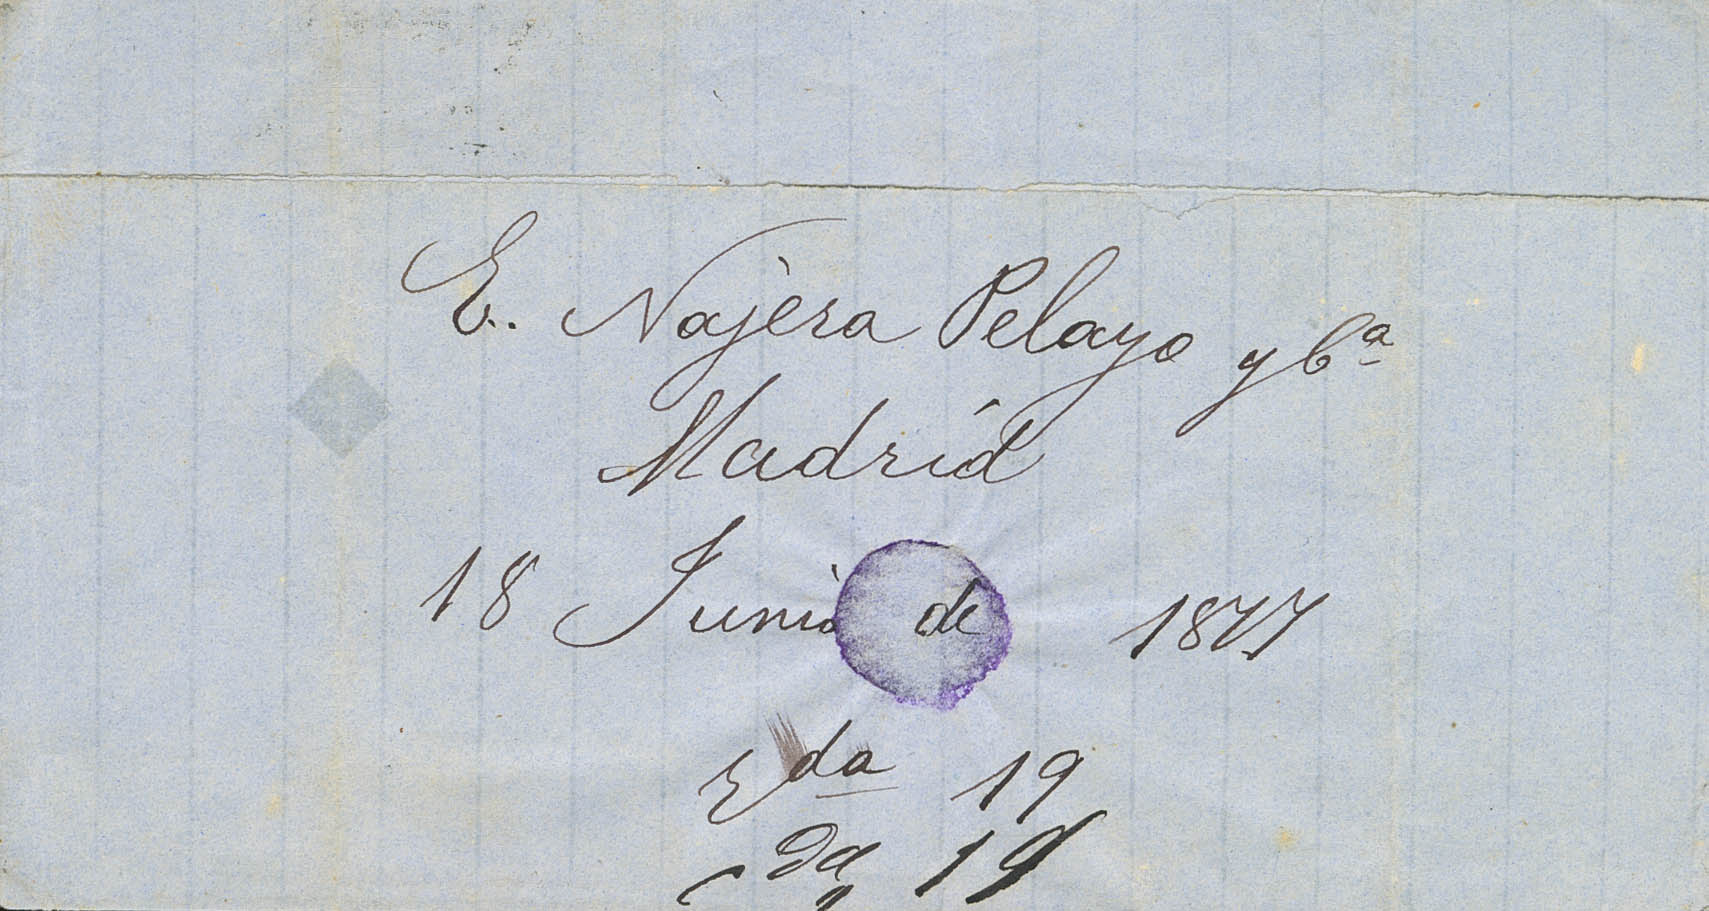 E. Nájera Pelayo y Cª
Madrid
18 Junio de 1877
rda 19
cda 19